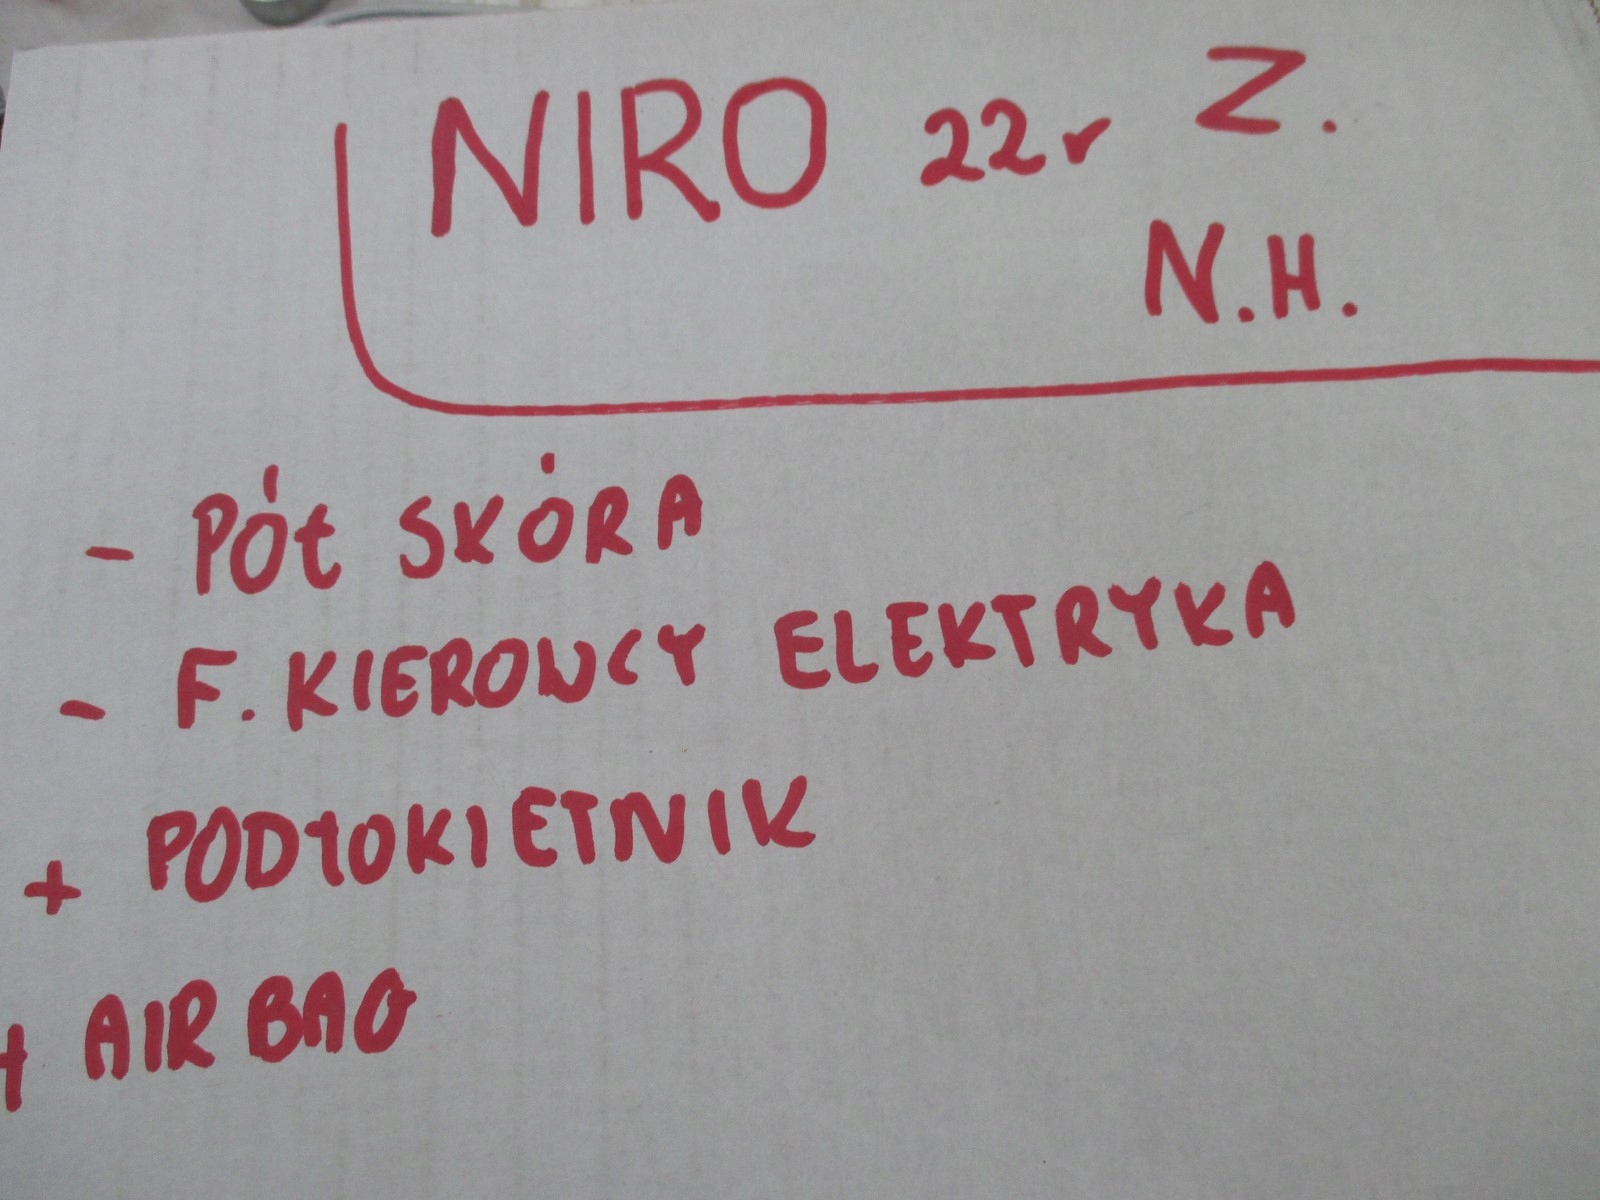 NIRO 22r Z.
N.H.
- PÓŁ SKÓRA
- F. KIEROWCY ELEKTRYKA
+ PODŁOKIETNIK
+ AIR BAG